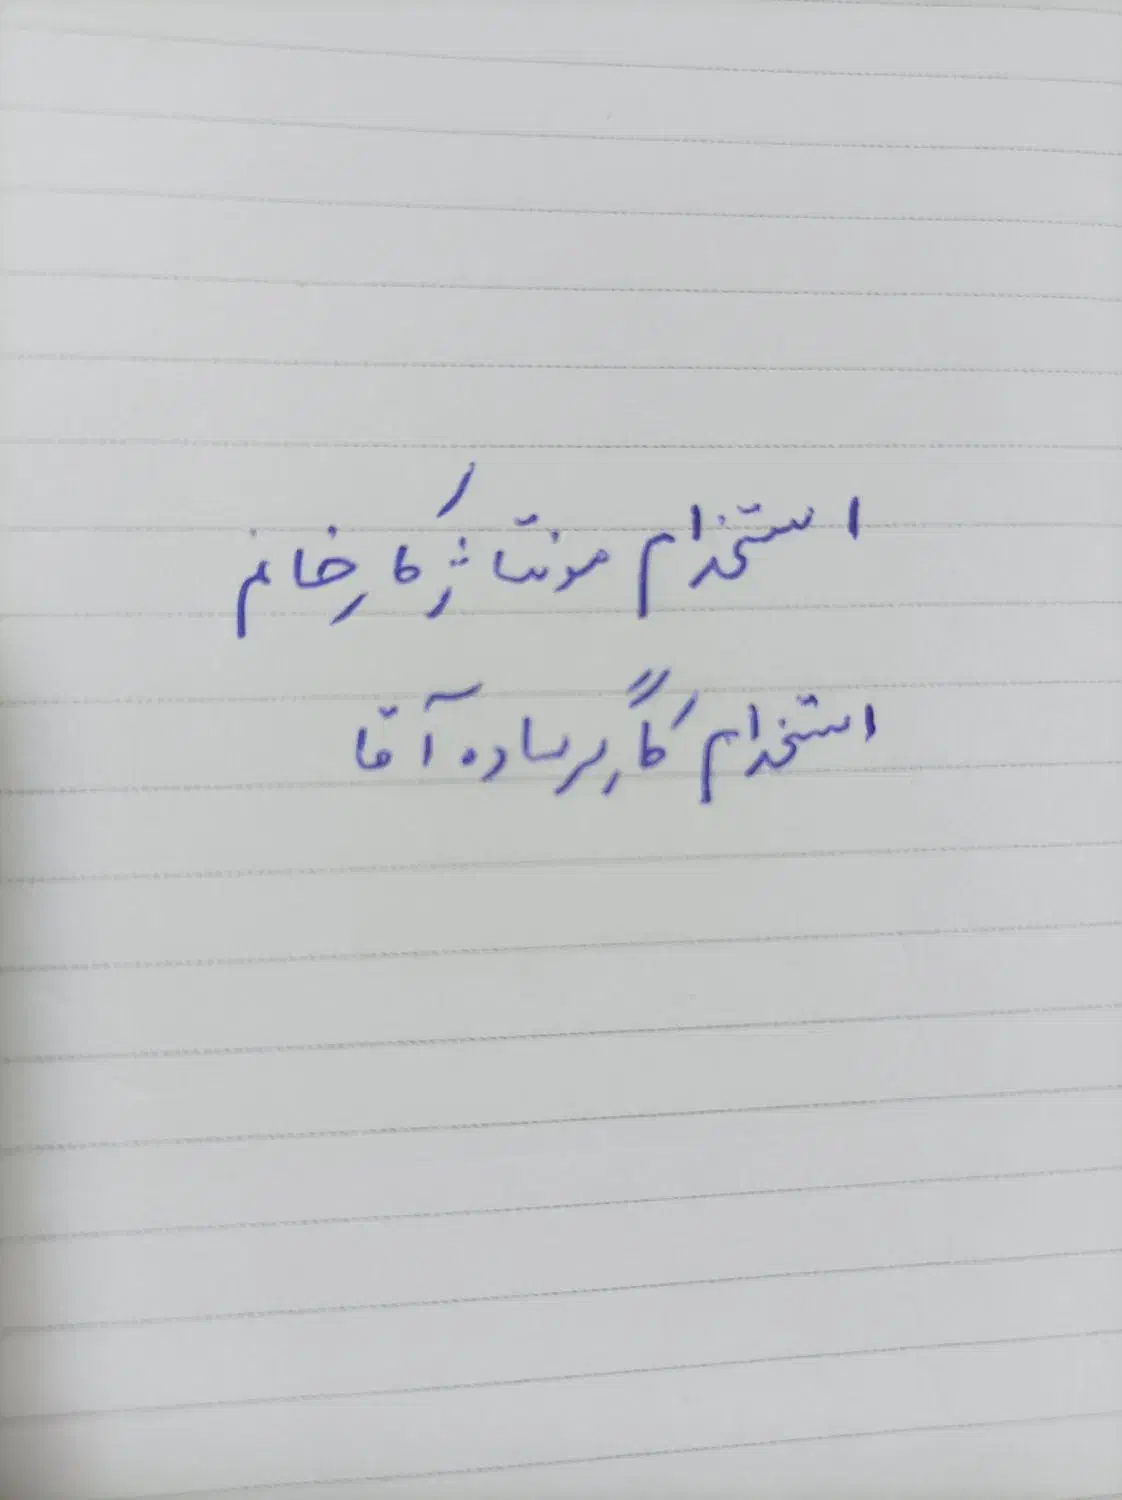 استخدام مونتاژکار خانم
استخدام کارگر ساده آقا